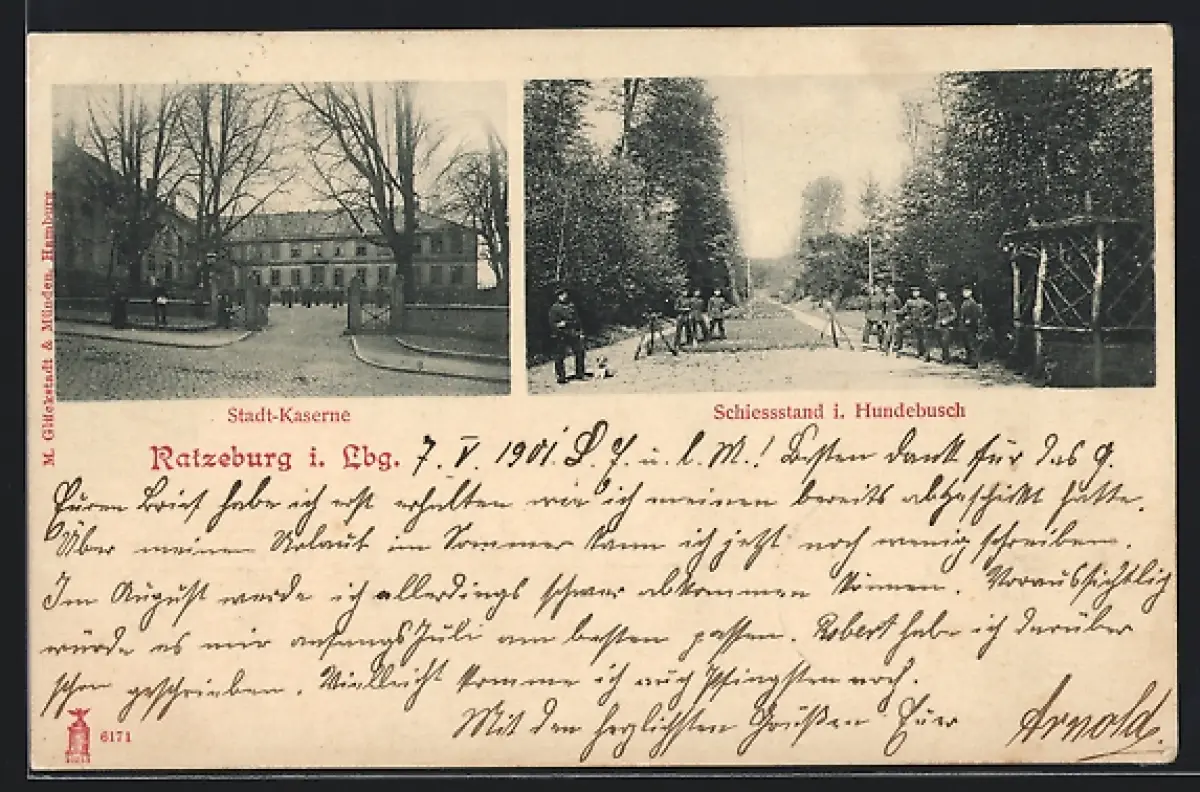 M. Glückstadt & Münden, Hamburg
Stadt-Kaserne
Schiessstand i. Hundebusch
Ratzeburg i. Lbg. 7. V. 1901. L. F. u. l. M.! Besten Dank für das g.
Euren Brief habe ich erst erhalten wie ich meinen bereits abgeschickt hatte.
Über meinen Urlaub im Sommer kann ich jetzt noch wenig schreiben.
Im August werde ich allerdings schwer abkommen können. Voraussichtlich
würde es mir anfangs Juli am besten passen. Robert habe ich darüber
schon geschrieben. Vielleicht komme ich auch Pfingsten noch.
Mit den herzlichsten Grüßen Euer Arnold.
6171